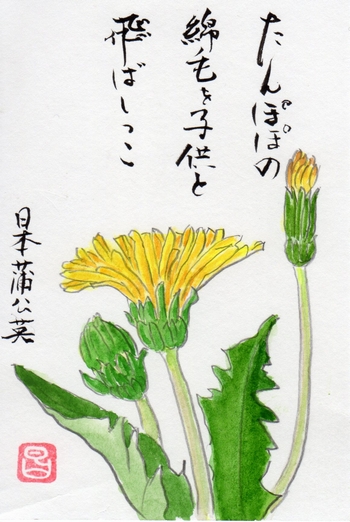 たんぽぽの
綿毛を子供と
飛ばしっこ
日本蒲公英